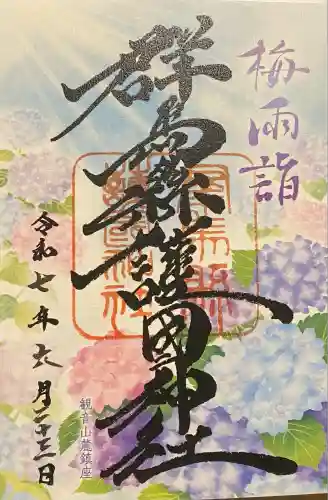 梅雨詣
群馬縣護國神社
令和七年六月二十三日
観音山麓鎮座